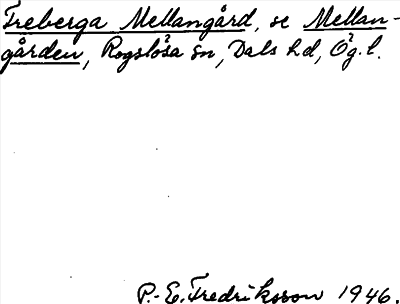 Freberga Mellangård, se Mellan-
gården, Rogslösa sn, Dals hd, Ög.l.
P.-E. Fredriksson 1946.